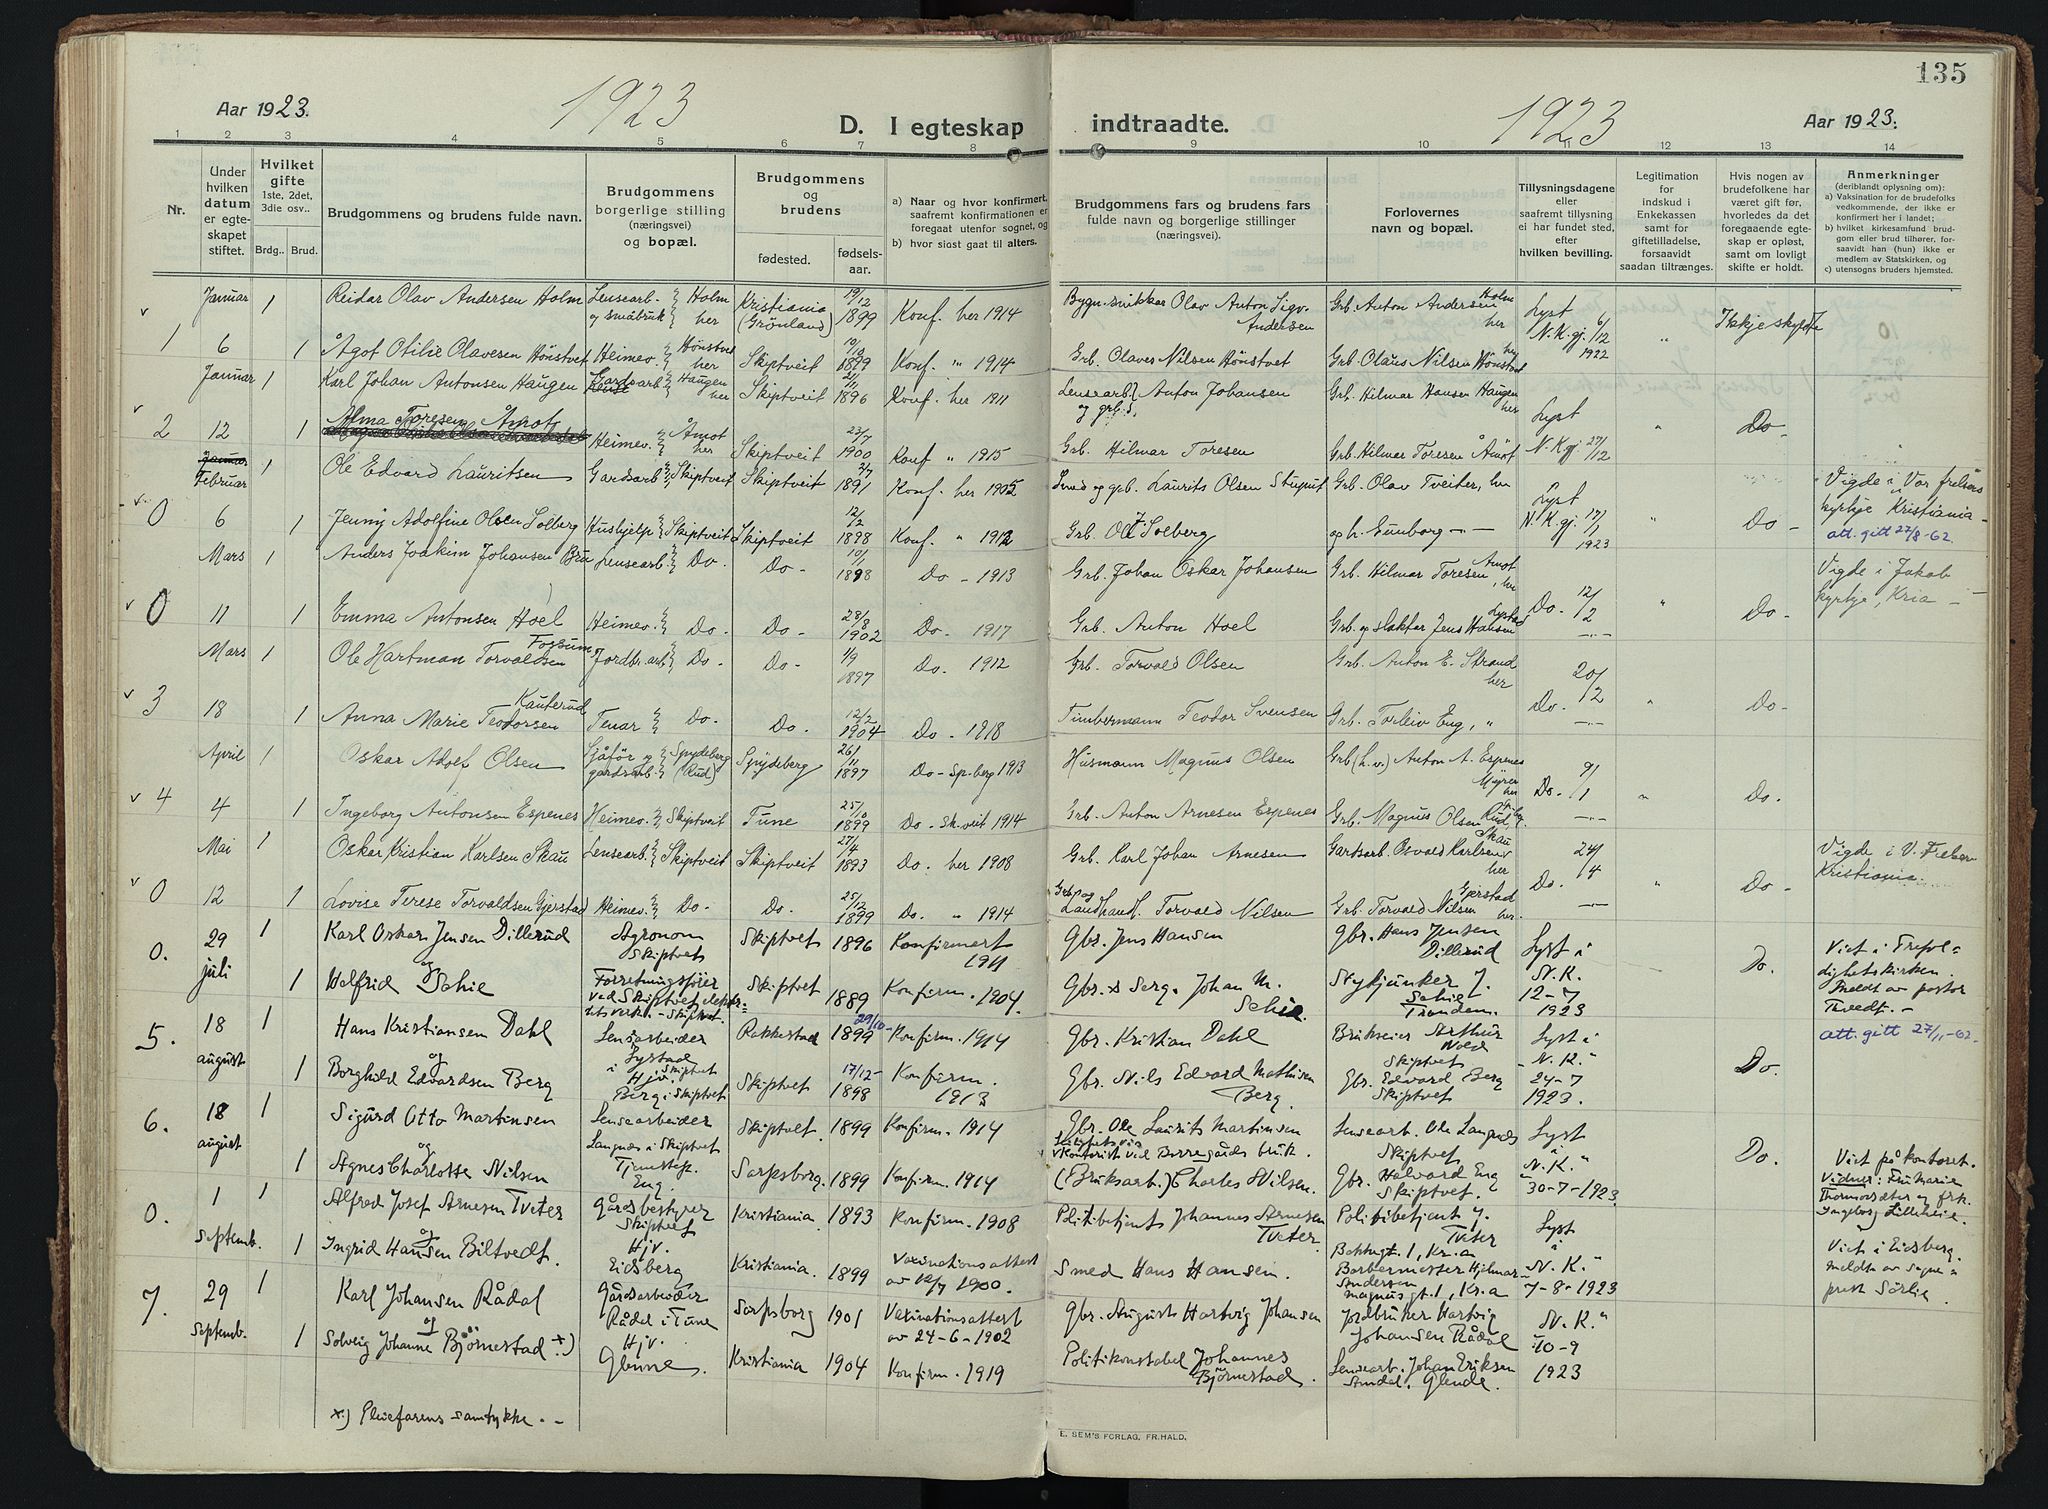 135
Aar 1923.
1923
D. I egteskap
indtraadte.
1923
Aar 1923.
1 2 3 4 5 6 7 8 9 10 11 12 13 14
Nr.
Under hvilken datum er egteskapet stiftet.
Hvilket gifte 1ste, 2det, 3die osv..
Brdg.. Brud.
Brudgommens og brudens fulde navn.
Brudgommens borgerlige stilling (næringsvei) og bopæl.
Brudgommens og brudens
fødested.
fødselsaar.
a) Naar og hvor konfirmert, saafremt konfirmationen er foregaat utenfor sognet, og
b) hvor sidst gaat til alters.
Brudgommens fars og brudens fars fulde navn og borgerlige stillinger (næringsvei).
Forlovernes navn og bopæl.
Tillysningsdagene eller saafremt tillysning ei har fundet sted, efter hvilken bevilling.
Legitimation for indskud i Enkekassen samt for giftetilladelse, forsaavidt saadan tiltrænges.
Hvis nogen av brudefolkene har været gift før, hvorledes da det foregaaende egteskap er opløst, samt om lovligt skifte er holdt.
Anmerkninger (deriblandt oplysning om):
a) Vaksination for de brudefolks vedkommende, der ikke er konfirmert her i landet;
b) hvilket kirkesamfund brudgom eller brud tilhører, forsaavidt han (hun) ikke er medlem av Statskirken, og
c) utensogns bruders hjemsted.
Januar 1 Reidar Olav Andersen Holm Lensearb. og småbruk Holm her Kristiania (Grönland) 19/12 1899 Konf. her 1914 Bygn.snikkar Olav Anton Sigv. Andersen Grb. Anton Andersen Holm her Lyst N.K. gj. 6/12 1922 Ikkje skylde
1 6 1 Ågot Otilie Olavesen Hönstvet Heimev. Hönstvet her Skiptveit 10/12 1899 Konf. " 1914 Grb. Olaves Nilsen Hönstvet Grb. Olaus Nilsen Hönstvet her
Januar 1 Karl Johan Antonsen Haugen Gardsarb. Haugen her Skiptveit 21/11 1896 Konf. her 1911 Lensearb. og grb. Anton Johansen Grb. Hilmar Hansen Haugen her Lyst
2 12 1 Alma Toresen Åmot Heimev. Åmot her Skiptveit 23/7 1900 Konf " 1915 Grb. Hilmar Toresen Grb. Hilmar Toresen Åmot N.K. gj. 27/12 " Do
Januar Februar 1 Ole Edvard Lauritsen Gardsarb. Skiptveit Skiptveit 1891 Konf. her 1905 Smed og grb. Laurits Olsen Stuput Grb. Olav Tveiter, her Lyst Vigde i Vor frelsers kyrkje Kristiania
0 6 1 Jenny Adolfine Olsen Solberg Hushjelp Skiptveit Skiptveit 12/2 1898 Konf. " 1912 Grb. Ole J. Solberg og h. Gunborg N.K. gj. 17/1 1923 " Do att. gitt 27/8-62.
Mars 1 Anders Joakim Johansen Bru Lensearb. Do. Do- 10/1 1898 Do - 1913 Grb. Johan Oskar Johansen Grb. Hilmar Toresen, Åmot her Vigde i Jakob kyrkje, Kria
0 11 1 Emma Antonsen Hoel Heimev. Do. Do- 28/8 1902 Do- 1917 Grb. Anton Hoel Grb. og slaktar Jens Hansen Lystad Do. 12/2 " Do-
Mars 1 Ole Hartman Torvaldsen Fossum Jordbr.arb Do. Do- 1/9 1897 Do. 1912 Grb. Torvald Olsen Grb. Anton E. Strand her
3 18 1 Anna Marie Teodorsen Kauterud Tenar Do. Do. 12/2 1904 Do - 1918 Timbermann Teodor Svensen Grb. Torleiv Eng, " Do. 20/2 " Do-
April 1 Oskar Adolf Olsen Sjåför og gardsarb. Spydeberg (Rud) Spydeberg 26/11 1897 Do - Sp.berg 1913 Husmann Magnus Olsen Grb. (h.v.) Anton A. Espenes Myrer her
4 4 1 Ingeborg Antonsen Espenes Heimev. Skiptveit Tune 25/10 1899 Do - Sk.veit 1914 Grb. Anton Arnesen Espenes Grb. Magnus Olsen Rud, Sp.berg Do. 9/1 " Do.
Mai 1 Oskar Kristian Karlsen Skau Lensearb. Skiptveit Skiptveit 27/4 1893 Do. her 1908 Grb. Karl Johan Arnesen Gardsarb. Osvald Karlsen Skau her Vigde i V. Frelser Kristiania
0 12 1 Lovise Terese Torvaldsen Gjerstad Heimev. Do. Do. 25/12 1899 Do. " 1914 Grb. og Landhandl. Torvald Nilsen Grb. Torvald Nilsen Gjerstad her. Do. 24/4 " Do -
0. 29 juli 1 Karl Oskar Jensen Dillerud Agronom Skiptvet Skiptvet 1896 Konfirmert 1911 Gbr. Jens Hansen Gbr. Hans Jensen Dillerud Lyst i N.K. 12-7 1923 Do. Viet i Trefoldighetskirken. Meldt av pastor Tveedt.-
1 og Valfrid Schie Forretningsfører ved Skiptvet elektrisitetsverk. - Skiptvet. Skiptvet 1889 Konfirm. 1904. Gbr. & Serg. Johan M. Schie. Nybjunker J. Schie Trondem.
5. 18 august 1 Hans Kristiansen Dahl Lensarbeider Lystad i Skiptvet Rakkestad 29/10- 1899 Konfirm. 1914 Gbr. Kristian Dahl Brukseier Arthur Wold Skiptvet Lyst i N.K." 24-7 1923. Do. att. gitt 27/11-62.
1 og Borghild Edvardsen Berg Hjv. Berg i Skiptvet Skiptvet 17/12- 1898 Konfirm. 1913 Gbr. Nils Edvard Mathisen Berg. Gbr. Edvard Berg Skiptvet
6. 18 august 1 Sigurd Otto Martinsen Lensearbeider Langnæs i Skiptvet Skiptvet 1899 Konfirm. 1914 Gbr. Ole Laurits Martinsen Lensearb. Ole Langnæs Skiptvet Lyst i N.K." 30-7-1923 Do. Viet på kontoret.
1 og Agnes Charlotte Nilsen Tjenestep. Eng. Sarpsborg. 1899 Konfirm. 1914 kontorist ved Borregaards bruk. (Bruksarb.) Charles Nilsen. Gbr. Halvard Eng Skiptvet. Vidner: Fru Marie Thormodsæter og frk. Ingeborg Lilleheie.
0. 1 septemb. 1 Alfred Josef Arnesen Tveter Gårdsbestyrer Skiptvet Kristiania. 1893 Konfirm. 1908 Politibetjent Johannes Arnesen Tveter. Politibetjent J. Tveter Lyst i N.K." 7-8-1923
1 og Ingrid Hansen Biltvedt. Hjv. Eidsberg Kristiania. 1899 Vaxinationsattest av 12/7 1900. Smed Hans Hansen. Barbermester Hjalmar Andersen Magnusgt. 1, Kr.a Viet i Eidsberg. meldt av sogneprest Sörlie.
7. 29 septemb. 1 Karl Johansen Rådal Gårdsarbeider Rådal i Tune Sarpsborg 1901 Vaxinationsattest av 24-6-1902 Gbr. August Hartvig Johansen Jordbruker Hartvig Johansen Rådal N.K." 10-9 1923
1 og Solveig Johanne Björnestad x) Hjv. Glenne. Kristiania 1904 Konfirm. 1919 Politikonstabel Johannes Björnestad. Lensearb. Johan Eriksen Glende.
x) Pleiefarens samtykke. -
E. SEM'S FORLAG, FR.HALD.